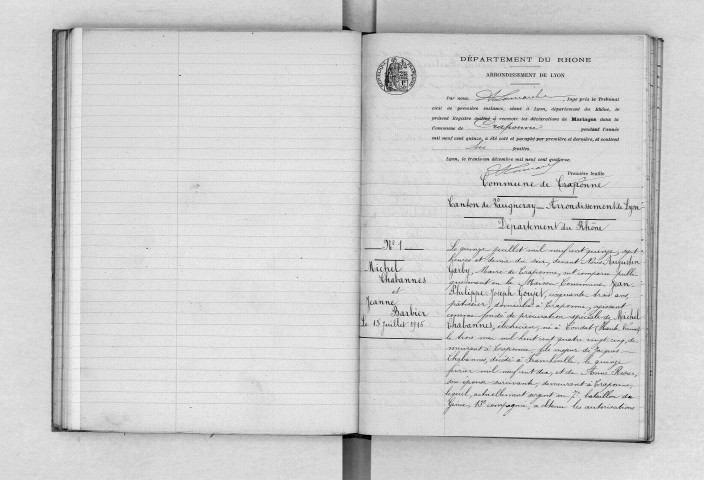 DÉPARTEMENT DU RHONE
ARRONDISSEMENT DE LYON
Par nous, Juge près le Tribunal
civil de première instance, séant à Lyon, département du Rhône, le
présent Registre destiné à recevoir les déclarations de Mariages dans la
Commune de Craponne pendant l'année
mil neuf cent quinze, a été coté et paraphé par première et dernière, et contient
six feuilles.
Lyon, le trente-un décembre mil neuf cent quatorze.
Première feuille
Commune de Craponne
Canton de Vaugneray - Arrondissement de Lyon
Département du Rhône
N° 1
Michel
Chabannes
et
Jeanne
Barbier
Le 15 Juillet 1915
Le quinze juillet mil neuf cent quinze, sept
heures et demie du soir, devant Nous Augustin
Garby, Maire de Craponne, ont comparu publi
quement en la Maison Commune, Jean
Philippe Joseph Goujet, cinquante trois ans,
pâtissier, domicilié à Craponne, agissant
comme fondé de procuration spéciale de Michel
Chabannes, électricien, né à Condat (Haute Vienne)
le trois mai mil huit cent quatre vingt cinq, de
meurant à Craponne, fils majeur de Jacques
Chabannes, décédé à le quinze
février mil neuf cent dix, et de Anne
son épouse survivante, demeurant à Craponne,
lequel, actuellement sergent au 7e bataillon du
Génie, 13e compagnie, a obtenu les autorisations